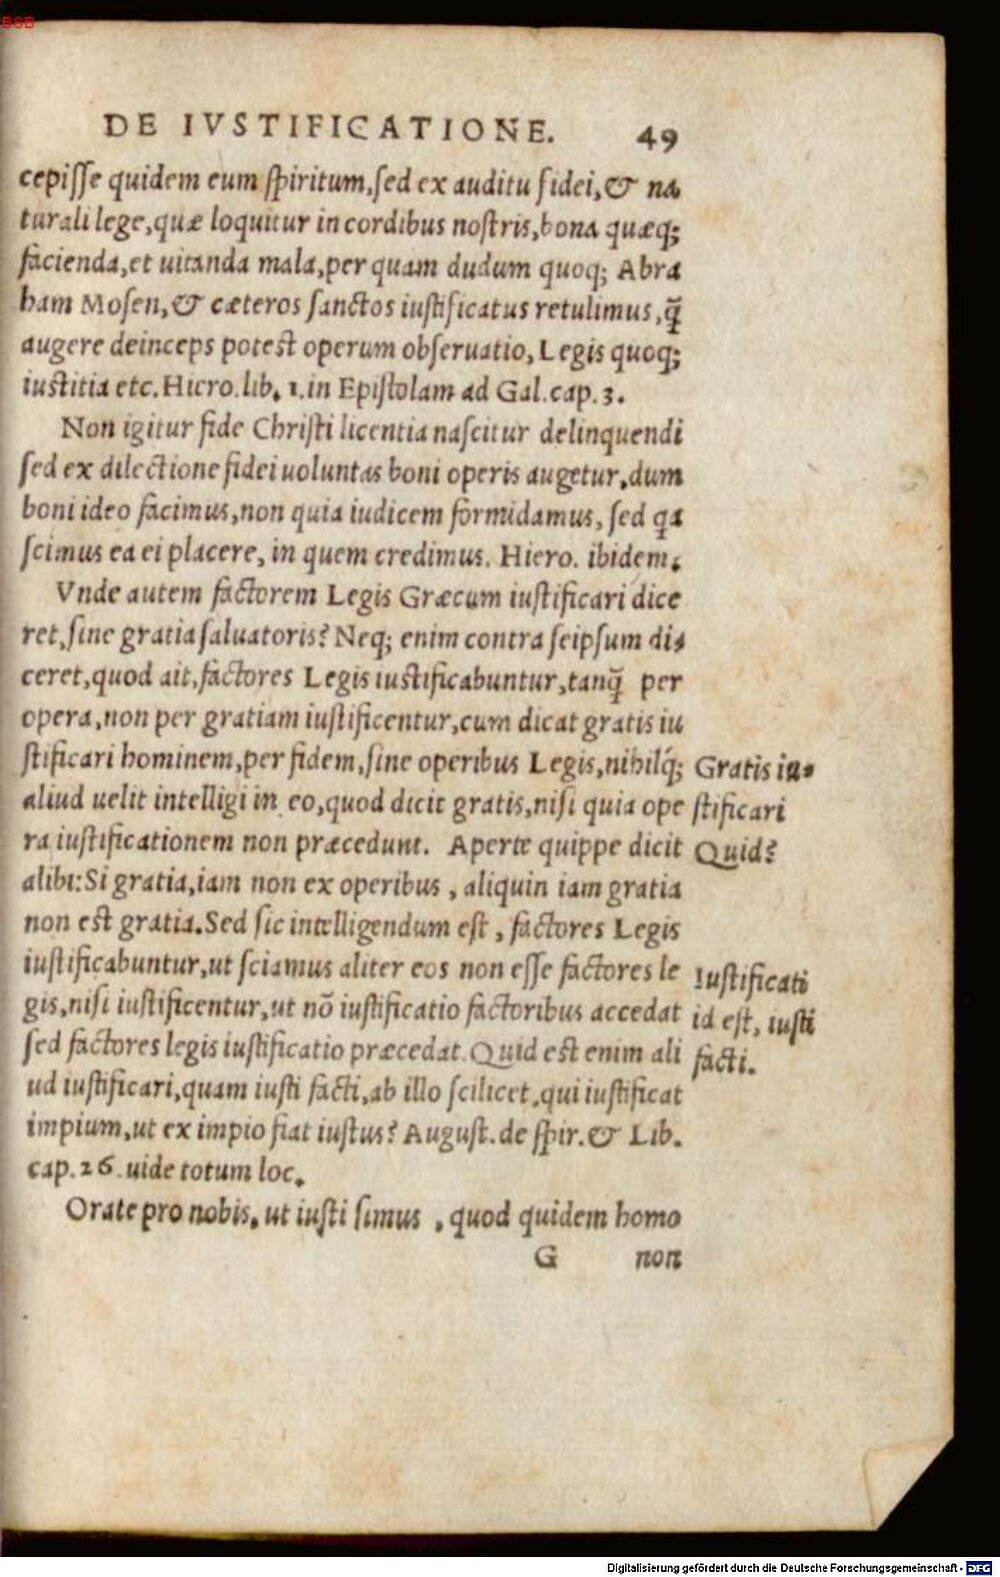 BSB
DE IVSTIFICATIONE. 49
cepiſſe quidem eum ſpiritum, ſed ex auditu fidei, & na
turali lege, quæ loquitur in cordibus noſtris, bona quæq;
facienda, et uitanda mala, per quam dudum quoq; Abra
ham Moſen, & cæteros ſanctos iuſtificatus retulimus, q̃
augere deinceps poteſt operum obſeruatio, Legis quoq;
iuſtitia etc. Hiero. lib. 1. in Epiſtolam ad Gal. cap. 3.
Non igitur fide Chriſti licentia naſcitur delinquendi
ſed ex dilectione fidei uoluntas boni operis augetur, dum
boni ideo facimus, non quia iudicem formidamus, ſed qa
ſcimus ea ei placere, in quem credimus. Hiero. ibidem.
Vnde autem factorem Legis Græcum iuſtificari dice
ret, ſine gratia ſaluatoris? Neq; enim contra ſeipſum di-
ceret, quod ait, factores Legis iuſtificabuntur, tanq̃ per
opera, non per gratiam iuſtificentur, cum dicat gratis iu
ſtificari hominem, per fidem, ſine operibus Legis, nihilq́;
aliud uelit intelligi in eo, quod dicit gratis, niſi quia ope
ra iuſtificationem non præcedunt. Aperte quippe dicit
alibi: Si gratia, iam non ex operibus, aliquin iam gratia
non eſt gratia. Sed ſic intelligendum eſt, factores Legis
iuſtificabuntur, ut ſciamus aliter eos non eſſe factores le
gis, niſi iuſtificentur, ut nō iuſtificatio factoribus accedat
ſed factores legis iuſtificatio præcedat. Quid eſt enim ali
ud iuſtificari, quam iuſti facti, ab illo ſcilicet, qui iuſtificat
impium, ut ex impio fiat iuſtus? Auguſt. de ſpir. & Lib.
cap. 26. uide totum loc.
Orate pro nobis, ut iuſti ſimus, quod quidem homo
G non
Gratis iu-
ſtificari
Quid?
Iuſtificati
id eſt, iuſti
facti.
Digitalisierung gefördert durch die Deutsche Forschungsgemeinschaft - DFG